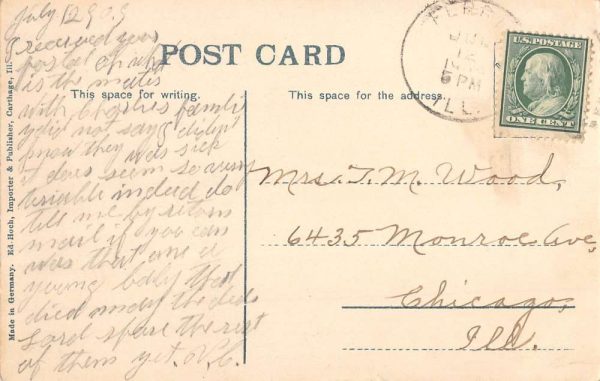 July 12 1909
received your
postal
is the
with Charlies family
you did not say, didn't
know they was sick
it does seem so
indeed do
tell me by return
mail if you can
was that one a
young baby that
died
Lord spare the rest
of them yet.
POST CARD
This space for writing.
This space for the address.
ILL.
6 PM
U.S. POSTAGE
ONE CENT
Mrs. T. M. Wood,
6435 Monroe Ave,
Chicago,
Ill.
Made in Germany. Ed. Hoch, Importer & Publisher, Carthage, Ill.